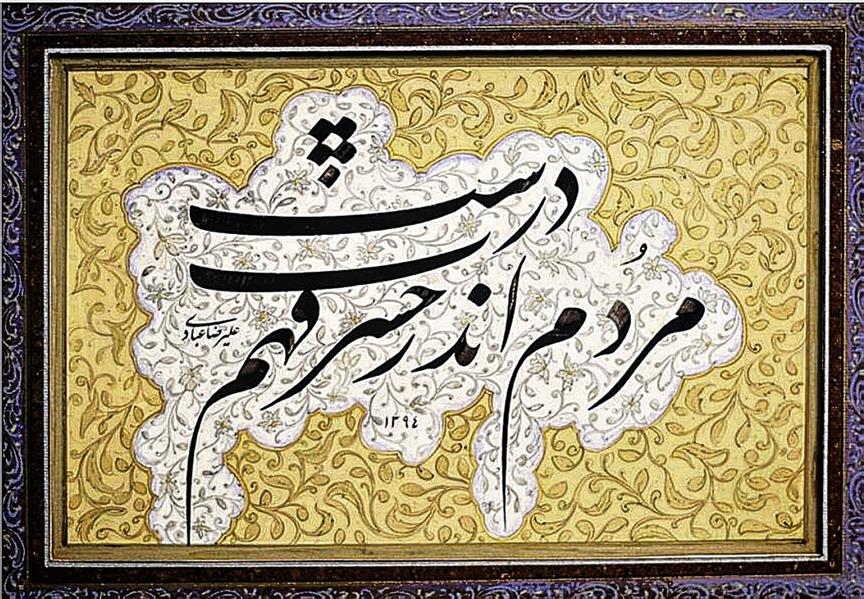 مُردم اندر حسرت فهم درست
علیرضا عبادی
١٣٩٤